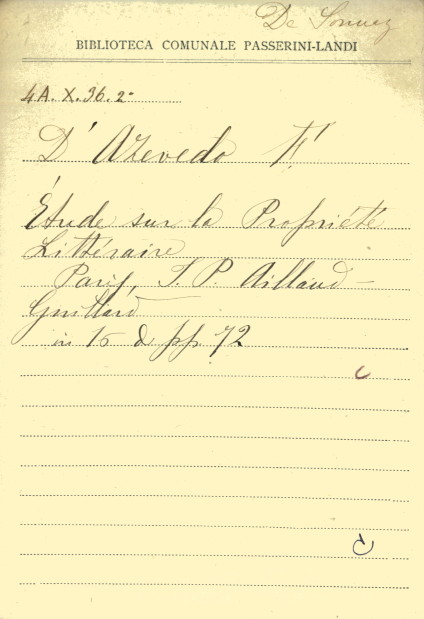 De
BIBLIOTECA COMUNALE PASSERINI-LANDI
4A. X. 36. 2°
D' Azevedo F.
Étude sur la Propriété
Littéraire
Paris, J. P. Aillaud -
Guillard
in 16 d pp. 72